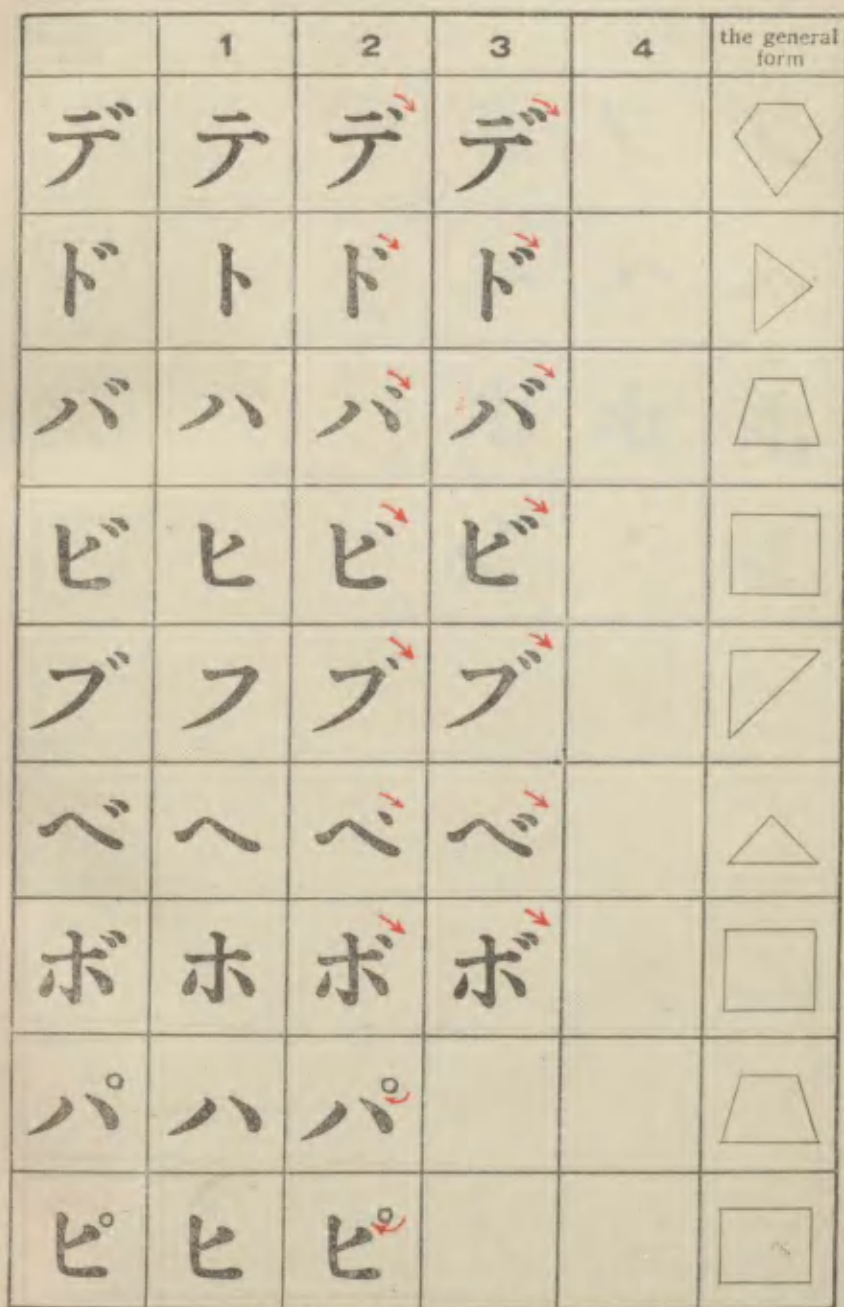 1 2 3 4 the general form
デ テ デ デ
ド ト ド ド
バ ハ バ バ
ビ ヒ ビ ビ
ブ フ ブ ブ
ベ ヘ ベ ベ
ボ ホ ボ ボ
パ ハ パ
ピ ヒ ピ